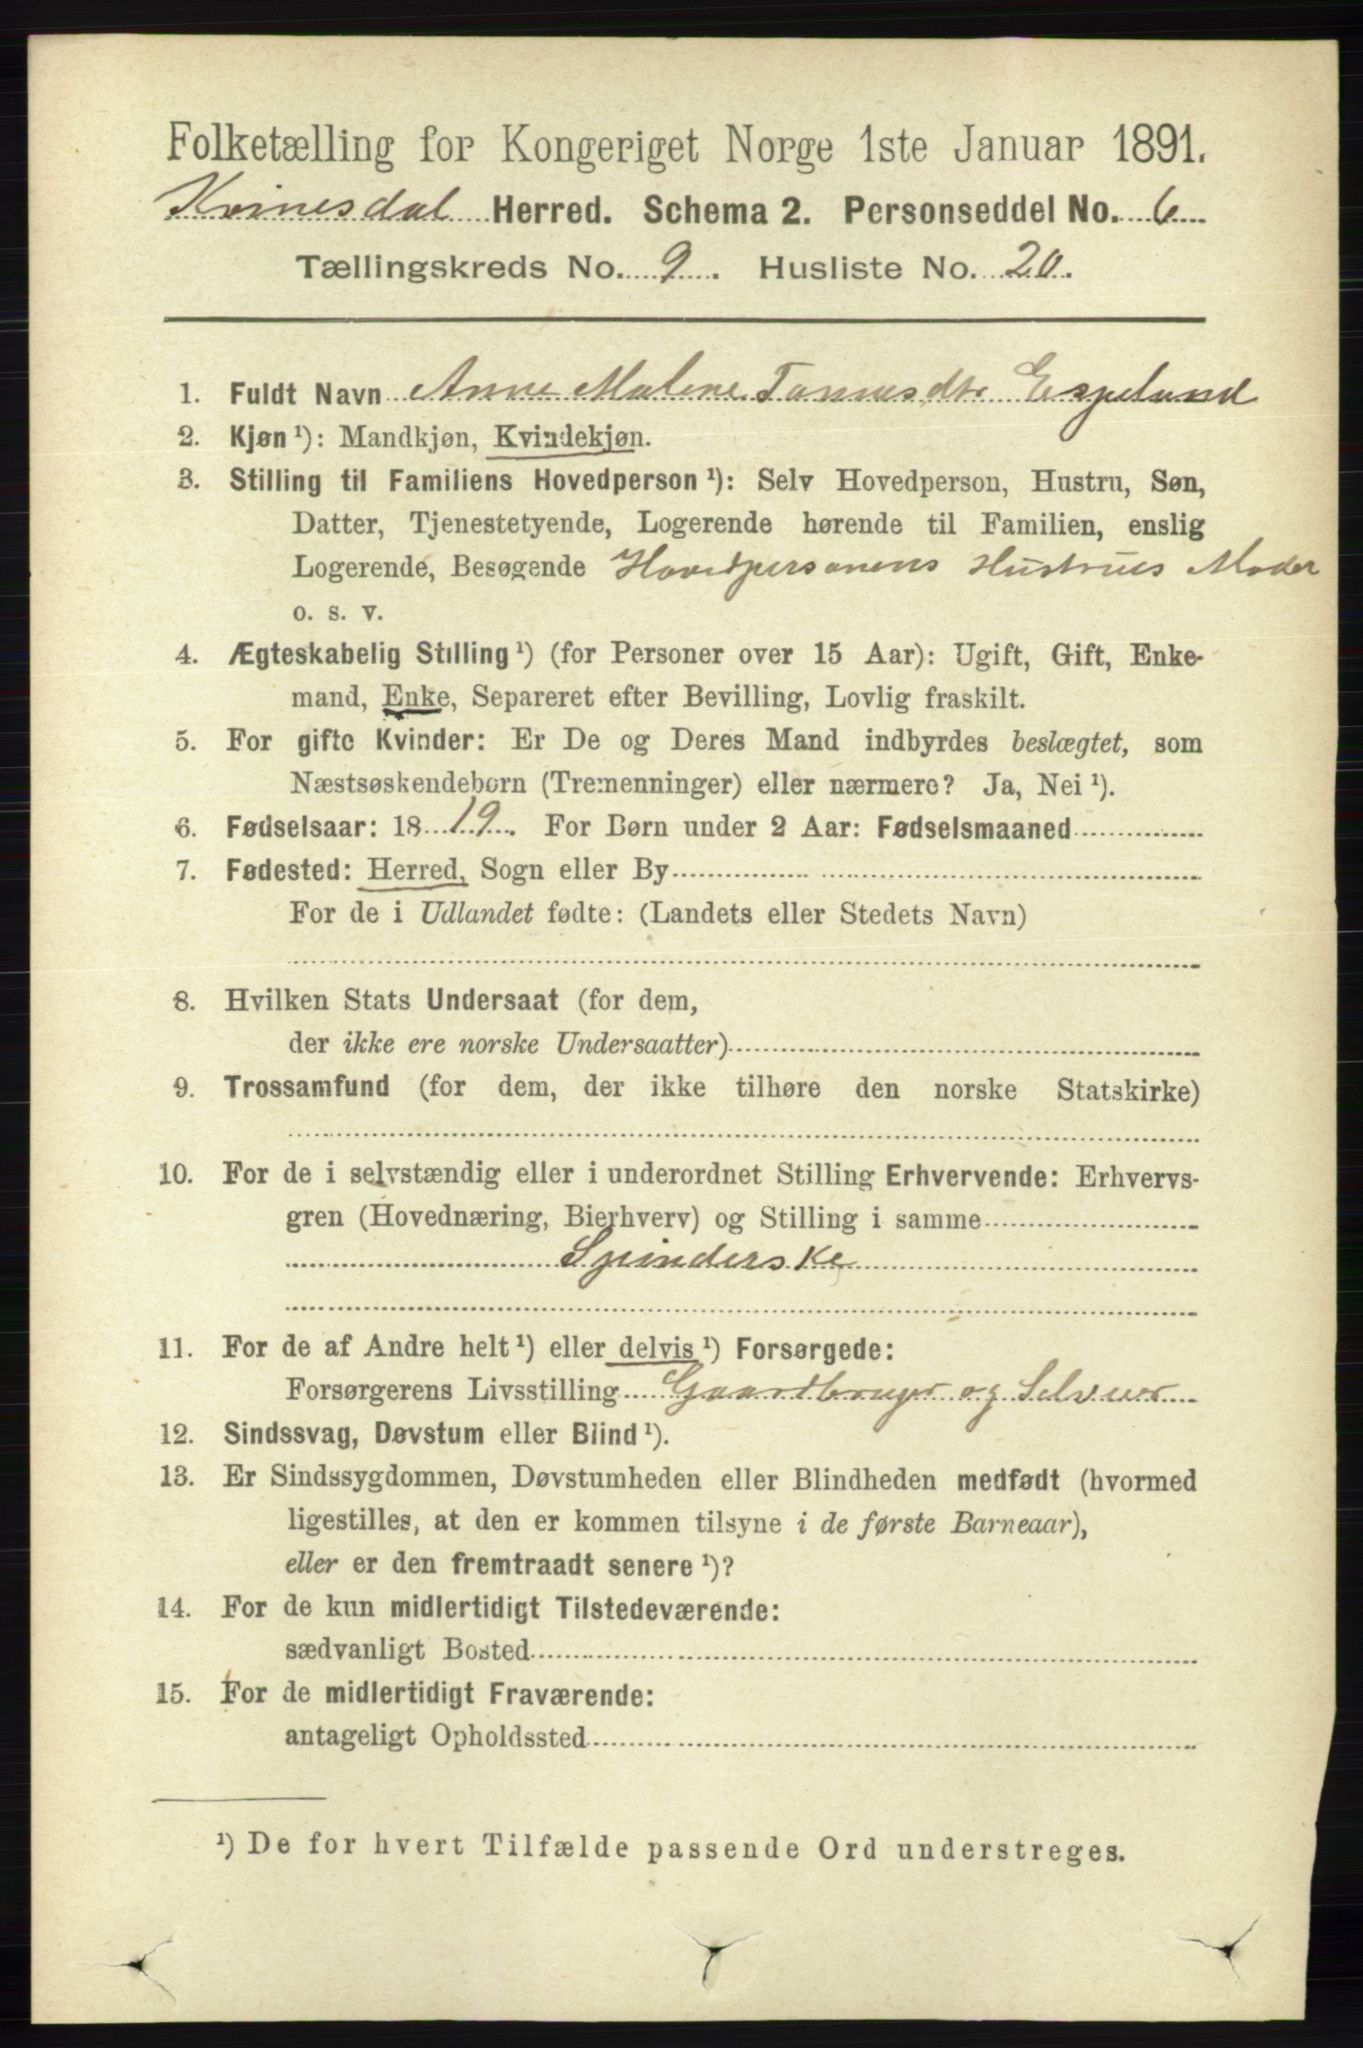 Folketælling for Kongeriget Norge 1ste Januar 1891.
Kvinesdal Herred. Schema 2. Personseddel No. 6
Tællingskreds No. 9. Husliste No. 20.
1. Fuldt Navn Anne Malene Tønnesdtr Espeland
2. Kjøn ¹): Mandkjøn, Kvindekjøn.
3. Stilling til Familiens Hovedperson ¹): Selv Hovedperson, Hustru, Søn,
Datter, Tjenestetyende, Logerende hørende til Familien, enslig
Logerende, Besøgende Hovedpersonens Hustrues Moder
o. s. v.
4. Ægteskabelig Stilling ¹) (for Personer over 15 Aar): Ugift, Gift, Enke-
mand, Enke, Separeret efter Bevilling, Lovlig fraskilt.
5. For gifte Kvinder: Er De og Deres Mand indbyrdes beslægtet, som
Næstsøskendebørn (Tremenninger) eller nærmere? Ja, Nei ¹).
6. Fødselsaar: 1819. For Børn under 2 Aar: Fødselsmaaned
7. Fødested: Herred, Sogn eller By
For de i Udlandet fødte: (Landets eller Stedets Navn)
8. Hvilken Stats Undersaat (for dem,
der ikke ere norske Undersaatter)
9. Trossamfund (for dem, der ikke tilhøre den norske Statskirke)
10. For de i selvstændig eller i underordnet Stilling Erhvervende: Erhvervs-
gren (Hovednæring, Bierhverv) og Stilling i samme
Spinderske
11. For de af Andre helt ¹) eller delvis ¹) Forsørgede:
Forsørgerens Livsstilling Gaardbruger og Selveier
12. Sindssvag, Døvstum eller Blind ¹).
13. Er Sindssygdommen, Døvstumheden eller Blindheden medfødt (hvormed
ligestilles, at den er kommen tilsyne i de første Barneaar),
eller er den fremtraadt senere ¹)?
14. For de kun midlertidigt Tilstedeværende:
sædvanligt Bosted
15. For de midlertidigt Fraværende:
antageligt Opholdssted
¹) De for hvert Tilfælde passende Ord understreges.